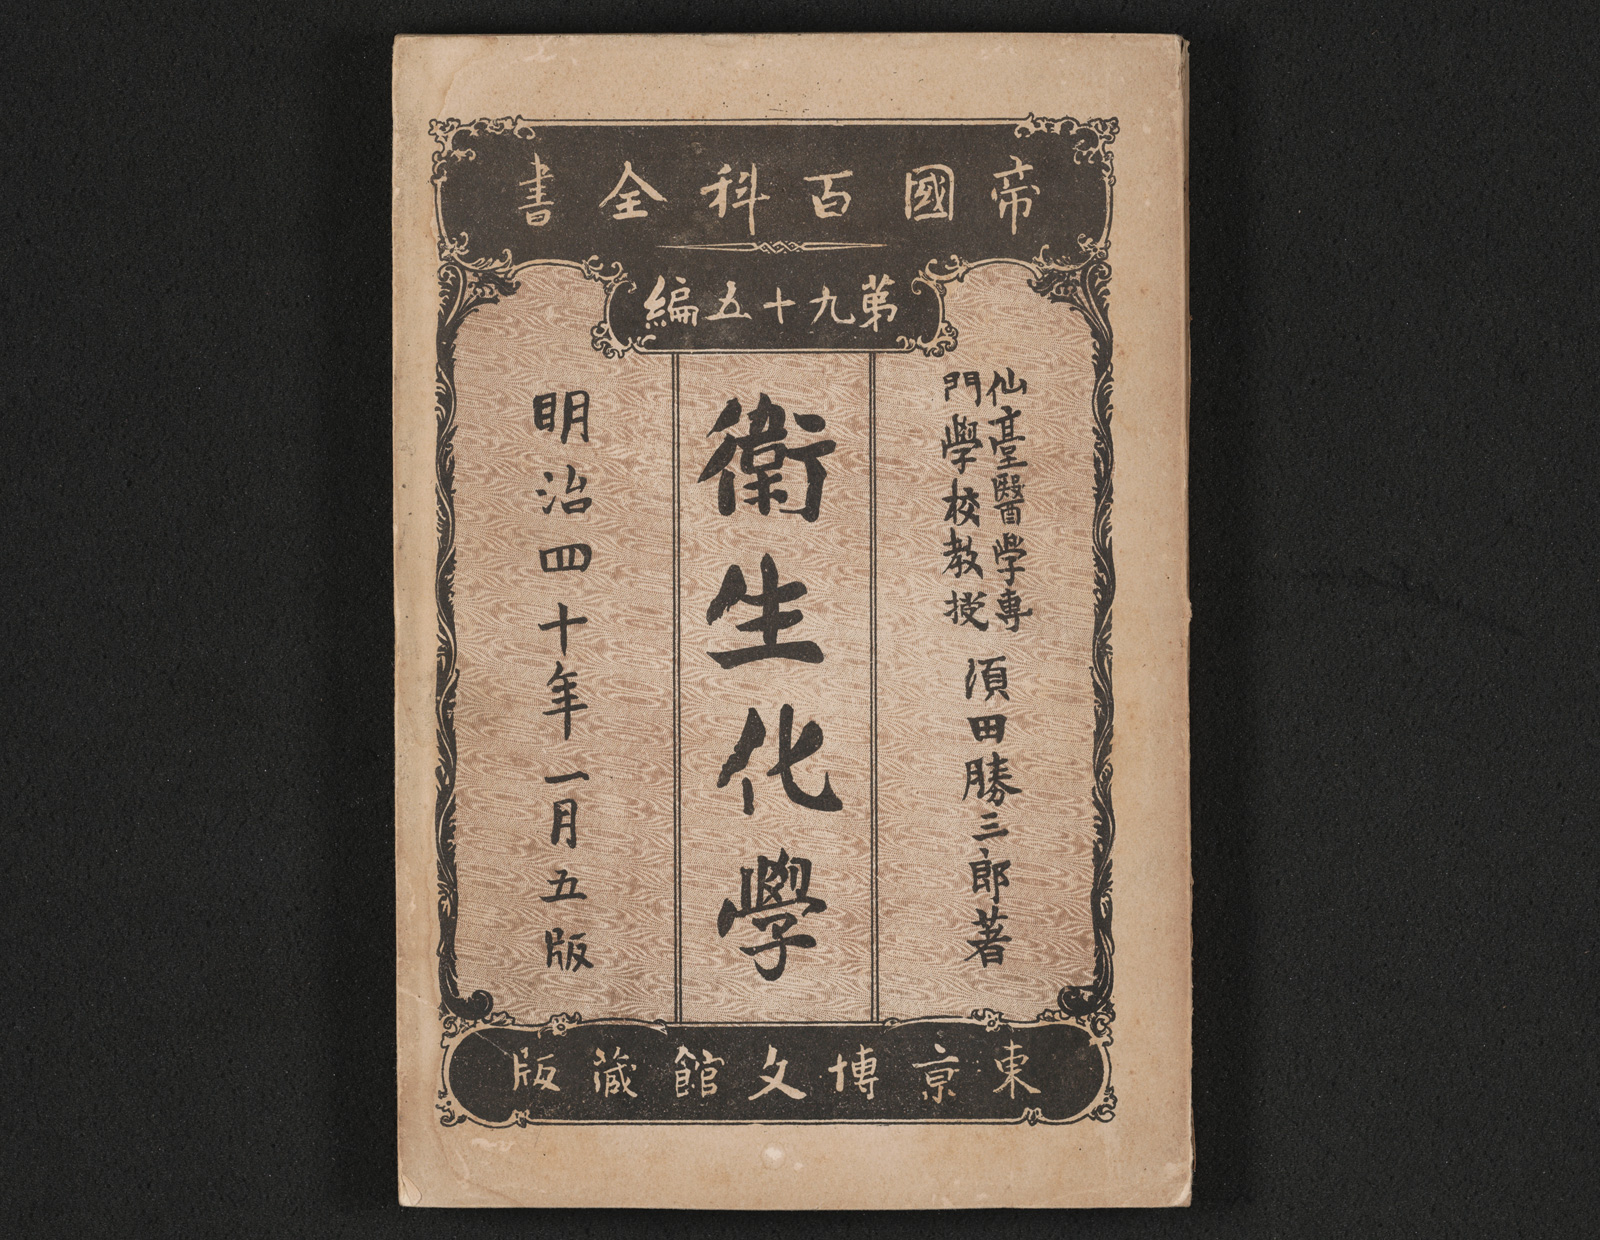 帝國百科全書
第九十五編
仙臺醫學專
門學校教授
須田勝三郎著
衛生化學
明治四十年一月五版
東京博文館蔵版